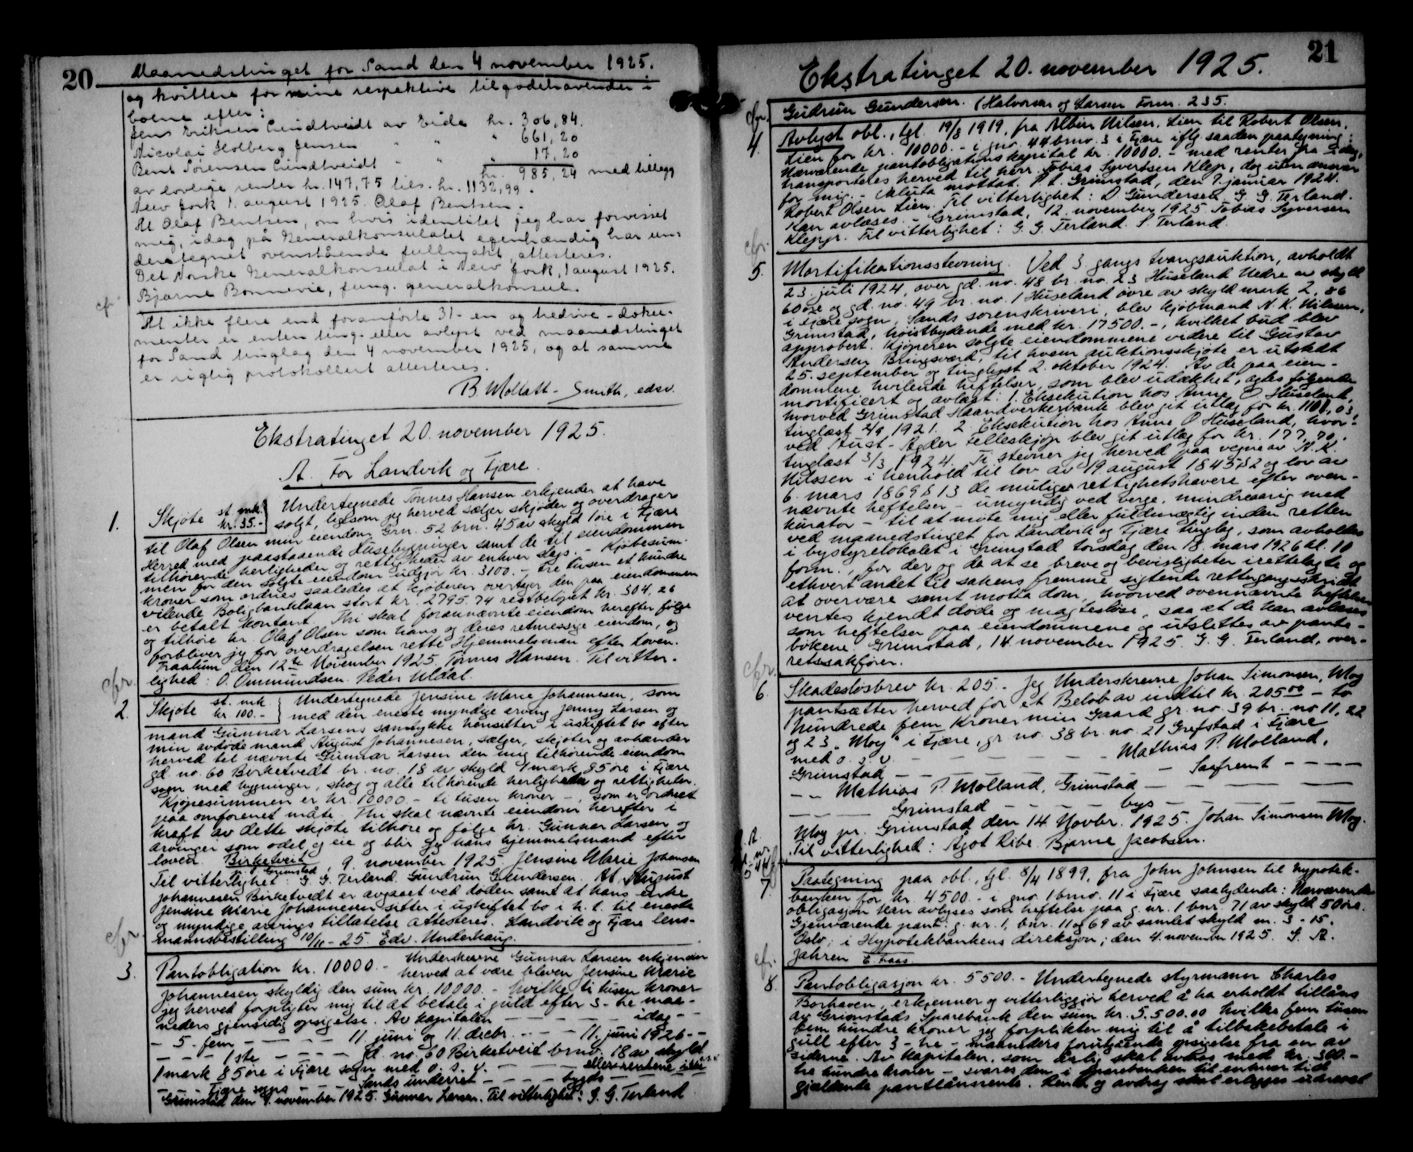 20
Maanedstinget for Sand den 4 november 1925.
og kvittere for mine respektive tilgodehavender i
boene efter:
Jens Eriksen Lindtveidt av Eide kr. 306,84
Nicolai Holberg Jensen " " 661,20
Bent Sørensen Lindtveidt " " 17,20
kr. 985,24 med tillegg
av lovlige renter kr. 147,75 tils. kr. 1132,99.
New York 1. august 1925. Olaf Bentsen.
At Olaf Bentsen, om hvis identitet jeg har forvisset
mig, idag på Generalkonsulatet egenhændig har un-
dertegnet ovenstående fullmakt, attesteres.
Det Norske Generalkonsulat i New York, 1 august 1925.
Bjarne Bonnevie, fung. generalkonsul.
At ikke flere end foranførte 31 - en og tredive - doku-
menter er enten ting- eller avlyst ved maanedstinget
for Sand tinglag den 4 november 1925, og at samme
er rigtig protokollert attesteres.
B Mollatt-Smith, edsv.
Ekstratinget 20. november 1925
A. For Landvik og Fjære.
1. Skjøte st. mk. kr. 35.- Undertegnede Tønnes Hansen erkjender at have
solgt, ligesom jeg herved sælger skjøder og overdrager
til Olaf Olsen min eiendom Grn. 52 brn. 45 av skyld 1 øre i Fjære
Herred med paastaaende Husebygninger samt de til eiendommen
tilhørende herligheder og rettigheder av enhver slags. - Kjøbesum-
men for den solgte eiendom utgjør kr. 3100.- tre tusen et hundre
kroner som ordnes saaledes at kjøberen overtager den paa eiendommen
vilende Boligbanklaan stort kr. 2795.74 restbeløpet kr. 304.26
er betalt kontant. Thi skal forannævnte eiendom herefter følge
og tilhøre hr. Olaf Olsen som hans og deres retmessige eiendom, og
forbliver jeg for overdragelsen rette Hjemmelsmand efter Loven.
den 12te November 1925. Tønnes Hansen. Til vitter-
lighed: O. Ommundsen. Peder Uldal.
2. Skjøte st. mk. kr 100.- Undertegnede Jensine Marie Johannesen, som
med den eneste myndige arving Jenny Larsen og
mand Gunnar Larsens samtykke hensitter i uskiftet bo efter
min avdøde mand August Johannesen, sælger, skjøter og avhænder
herved til nævnte Gunnar Larsen den mig tilhørende eiendom
gd no. 60 Birketvedt br. no. 18 av skyld 1 mark 85 øre i Fjære
sogn med bygninger, skog og alle tilhørende herligheter og rettigheter.
Kjøpesummen er kr. 10000.- ti tusen kroner -, som er ordnet
paa omforenet måte. Thi skal nævnte eiendom herefter i
kraft av dette skjøte tilhøre og følge hr. Gunnar Larsen og
arvinger som odel og eie og blir jeg hans hjemmelsmand efter
loven. Birketveit pr. Grimstad 9. november 1925. Jensine Marie Johansen
Til vitterlighet: G. G. Terland. Gundrun Gundersen. At August
Johannesen Birketvedt er avgaaet ved døden samt at hans enke
Jensine Marie Johannesen sitter i uskiftet bo i h. t. til eneste
og myndige arvings tillatelse attesteres. Landvik og Fjære lens-
mannsbestilling 10/11-25 Edv. Underhaug.
3. Pantobligation kr. 10000.- Underskrevne Gunnar Larsen erkjender
herved at være bleven Jensine Marie
Johannesen skyldig den sum kr. 10.000.- hvilke ti tusen kroner
jeg herved forpligter mig til at betale i guld efter 3-tre maa-
neders gjensidig opsigelse. Av kapitalen - - - - - - idag - -
- 5- fem - - - - - 11 juni og 11. decbr. - - - 11. juni 1926 - -
- - - 1ste - - - - gd no. 60 Birketveit brno. 18 av skyld
1 mark 85 øre i Fjære sogn med o. s. v. - - - - - eller rentene
- - Fjære sogns - - - Sands underret - - - bygds - - - -
Grimstad den 9. november 1925. Gunnar Larsen. Til vitterlighet: G. G. Terland
21
Ekstratinget 20. november 1925.
Gudrun Gundersen. (Halvorsen og Larsen Form. 235.
4. Avlyst obl., tgl. 19/3 1919, fra Albin Nilsen, Lien til Robert Olsen,
Lien for kr. 10000.- i gno. 49 brno. 3 i Fjære iflg. saaden paategning:
Nærværende pantobligations kapital kr. 10000.- med renter fra idag,
transporteres herved til herr Tobias Syvertsen Klepp, dog uten ansvar
for mig. Valuta mottat. P. t. Grimstad, den 7. januar 1924.
Robert Olsen Lien. Til vitterlighet: D Gundersen G G. Terland.
Kan avlæses. - Grimstad, 12. november 1925 Tobias Syversen
Klepp. Til vitterlighet: G. G. Terland. S. Terland.
5. Mortifikationsstevning. Ved 3 gangs tvangsauktion, avholdt
23. juli 1924, over gd. no. 48 br. no. 23 Huseland Nedre av skyld
60 øre og gd. no. 49 br. no. 1 Huseland øvre av skyld mark 2,86
i Fjære sogn, Sands sorenskriveri, blev kjøbmand N. K. Nilssen,
Grimstad, høistbydende med kr. 17500.-, hvilket bud blev
approbert. Kjøperen solgte eiendommene videre til Gustav
Andersen Bringsværd, til hvem auktionsskjøte er utstedt
25. september og tinglyst 2. oktober 1924. Av de paa eien-
dommene hvilende heftelser, som blev udækket, agtes følgende
mortificert og avlæst: 1. Eksekution hos Anne O Huseland,
hvorved Grimstad Haandverkerbank blev git utlæg for kr. 1101,03,
tinglæst 2/9 1921. 2 Eksekution hos Anne O Huseland, hvor-
ved Aust-Agder Felleskjøp blev git utlæg for kr. 177,70,
tinglæst 3/3 1924. Ti stevner jeg herved paa vegne av N. K.
Nilssen i henhold til lov av 19 august 1845 § 2 og lov av
6 mars 1869 § 13 de mulige rettighetshavere efter oven-
nævnte heftelser - umyndig ved verge, mindreaarig med
kurator - til at møte mig eller fuldmægtig inden retten
ved maanedstinget for Landvik og Fjære tinglag, som avholdes
i bystyrelokalet i Grimstad torsdag den 18. mars 1926 kl. 10
form., for der og da at se breve og bevisligheter irettelagte og
ethvert andet til sakens fremme sigtende rettergangsskridt
at overvære samt motta dom, hvorved ovennævnte heftelser
ventes kjendt døde og magtesløse, saa at de kan avlæses
som heftelser paa eiendommene og utslettes av pante-
bøkene. Grimstad, 14 november 1925. G. G. Terland, over-
retssakfører.
6. Skadesløsbrev kr. 205.- Jeg Underskrevne Johan Simonsen, Moy
pantsætter herved for et Beløb av indtil kr. 205.00 - to
hundrede fem kroner min Gaard gr. no. 39 br. no 11, 22
og 23 "Moy" i Fjære, gr. no. 38 br. no. 21 Grefstad i Fjære
med o. s. v. - - - - - - - - - Mathias P. Molland,
Grimstad - - - - - - - - - - Saafremt - - - -
- - Mathias P. Molland, Grimstad - - - - - - -
- - - Grimstad - - - - - bys - - - - - - -
Moy pr. Grimstad den 14 Novbr. 1925. Johan Simonsen Moy.
Til vitterlighed: Agot Ribe. Bjarne Jacobsen.
7. Paategning paa obl., tgl. 8/4 1899, fra John Johnsen til Hypotek-
banken for kr. 4500.- i gno 1 brno. 11 i Fjære saalydende: Nærværende
obligasjon kan avlyses som heftelse paa g. nr. 1 bnr. 71 av skyld 50 øre.
Gjenværende pant: g. nr. 1, bnr. 11 og 69 av samlet skyld m. 3-15.
Oslo, i Hypotekbankens direksjon, den 4. november 1925. S. A.
Jahren E. Haas.
8. Pantobligasjon kr. 5500.- Undertegnede styrmann Charles
Borhaven, erkjenner og vitterliggjør herved å ha erholdt tillåns
av Grimstads Sparebank den sum kr. 5.500.00 hvilke fem tusen
fem hundre kroner jeg forplikter mig til å tilbakebetale i
gull efter 3 - tre - maaneders forutgående opsigelse fra en av
siderne. Av kapitalen, som årlig skal avdras med kr. 300.-
tre hundre kroner - svares den i Sparebanken til enhver tid
gjeldende pantlånsrente. Rente og avdrag skal erlegges uderest